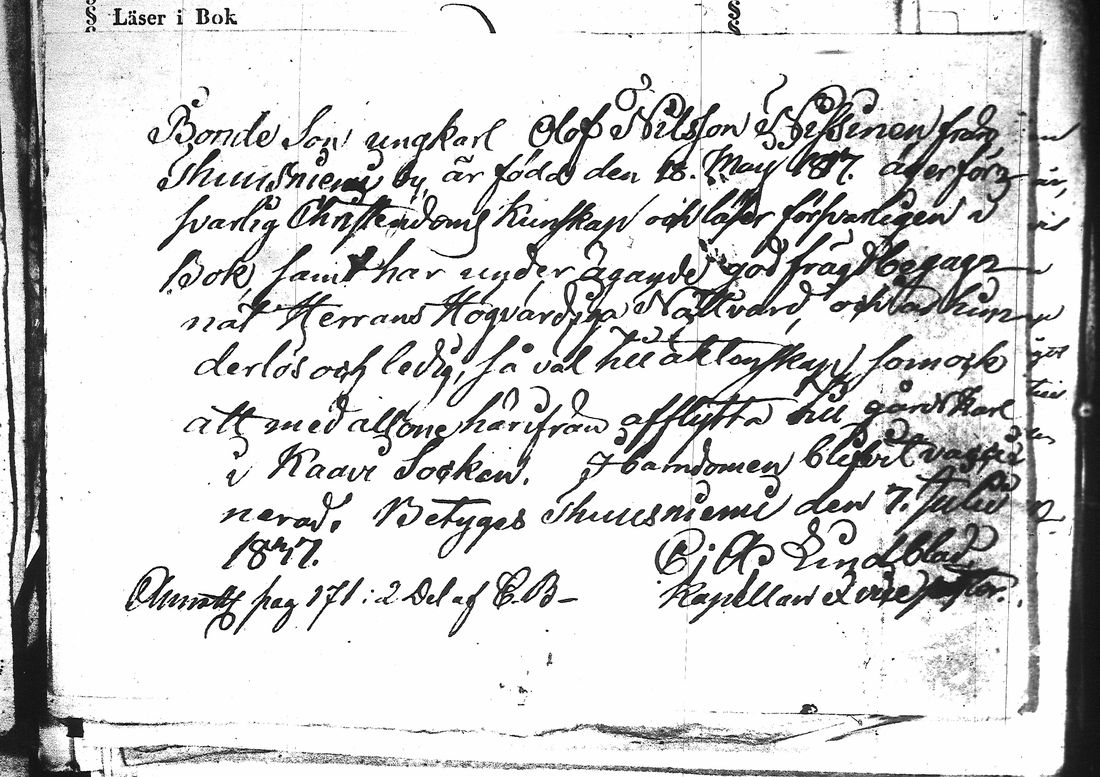 § Läser i Bok §
Bonde Son ungkarl Olof Nilsson Nissinen från
Thuusniemi by, är född den 18. May 1817. äger för-
svarlig Christendoms Kunskap och läser försvarligen i
Bok samt har under ägande god frägd begagn-
nat Herrans Högvärdiga Nattvard, och är hin-
derlös och ledig, så väl till äktenskap som ock
att med all sone härifrån afflytta till gårds Karl
i Kaavi Socken. I barndomen blifvit vacci-
nerad. Betygas Thuusniemi den 7. Julii
1837.
C. J. Lindblad
Kapellan & vice pastor.
pag 171 i 2 Del af C. B-